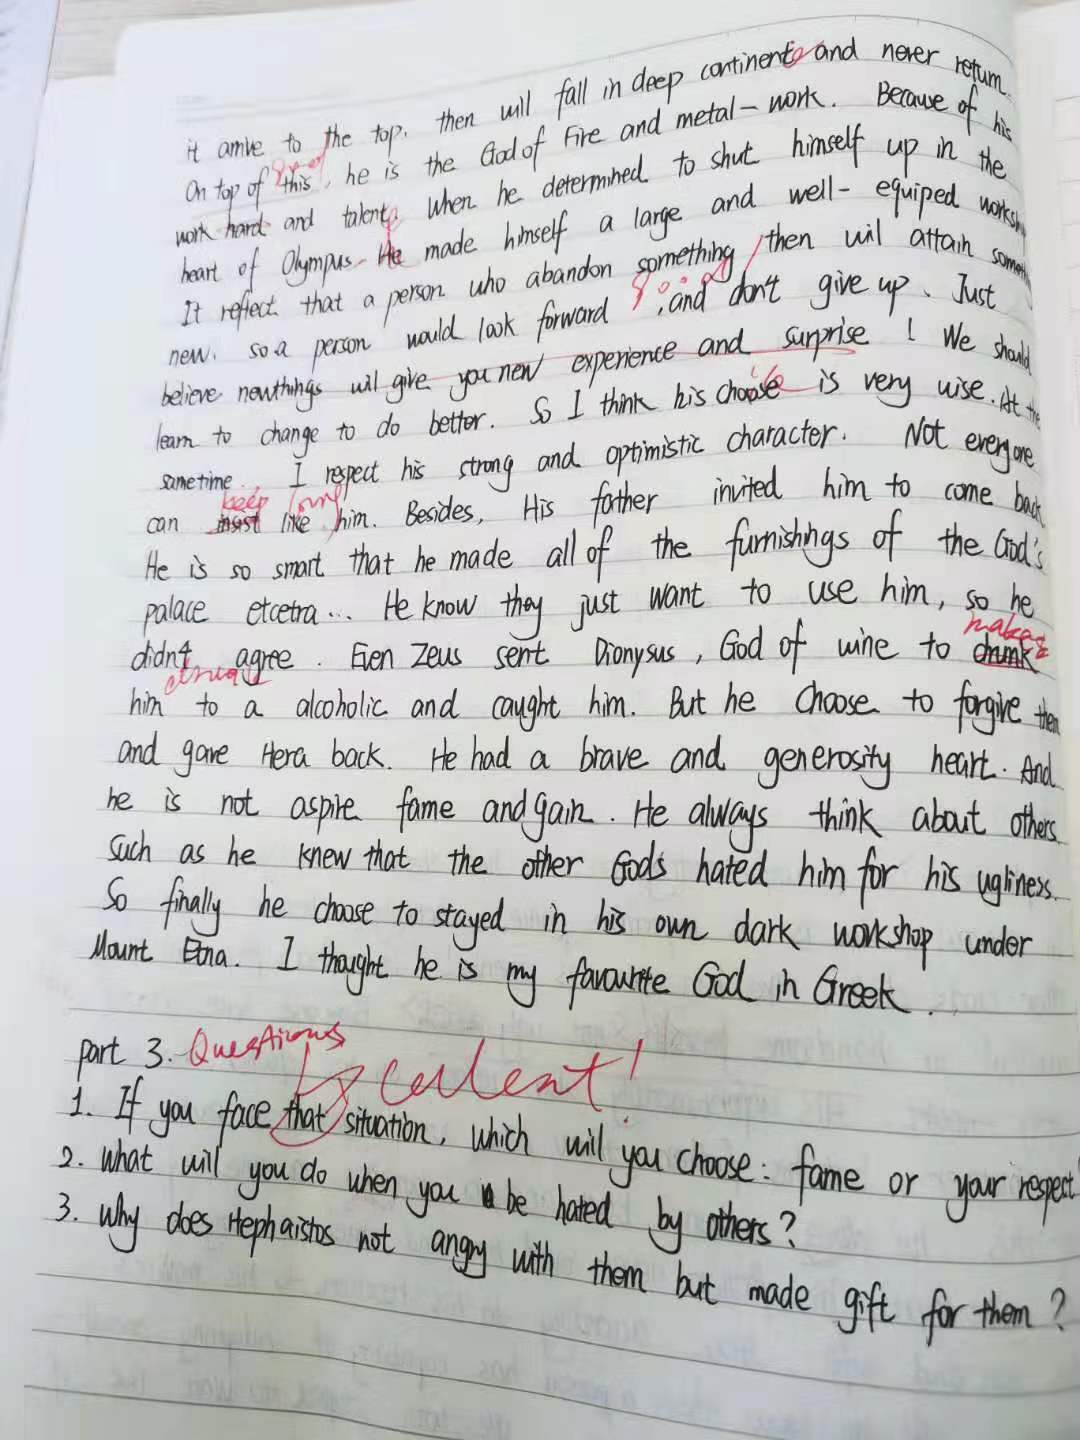 it arrive to the top. then will fall in deep continent and never return.
On top of this, he is the God of Fire and metal-work. Because of his
work hard and talent. When he determined to shut himself up in the
heart of Olympus. He made himself a large and well-equiped
It reflect that a person who abandon something, then will attain
good
new. so a person would look forward, and don't give up. Just
believe newthings will give you new experience and surprise! We should
learn to change to do better. So I think his choose is very wise. At the
sametime. I respect his strong and optimistic character. Not everyone
keep
can insist like him. Besides, His father invited him to come back
He is so smart that he made all of the furnishings of the God's
palace etcetra... He know they just want to use him, so he
make
didn't agree. Even Zeus sent Dionysus, God of wine to drunk
him to a alcoholic and caught him. But he choose to forgive them
and gave Hera back. He had a brave and generosity heart. And
he is not aspire fame and gain. He always think about others.
Such as he knew that the other Gods hated him for his ugliness.
So finally he choose to stayed in his own dark workshop under
Mount Etna. I thought he is my favourite God in Greek.
part 3. Questions
Excellent!
1. If you face that situation, which will you choose: fame or your respect
2. What will you do when you be hated by others?
3. Why does Hephaistos not angry with them but made gift for them?